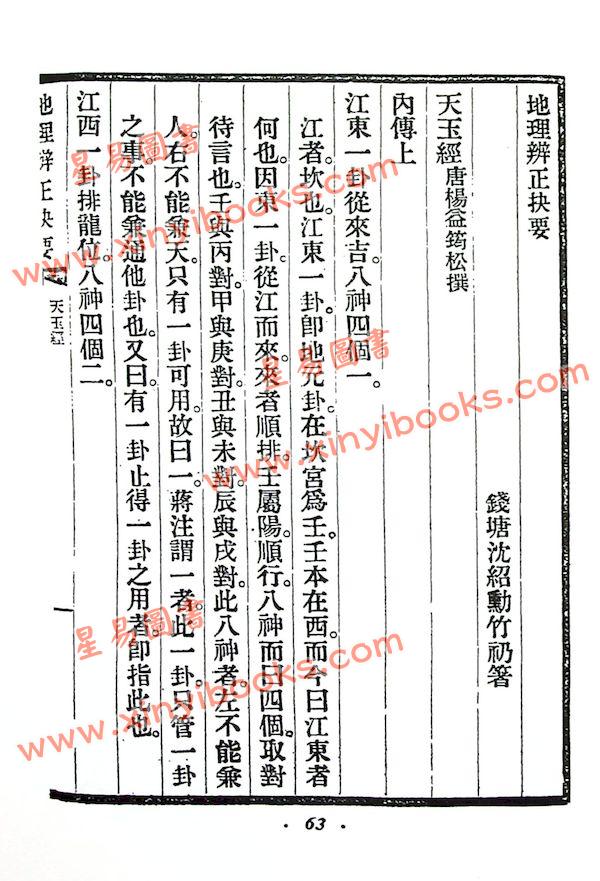 地理辨正抉要
錢塘沈紹勳竹礽箸
天玉經唐楊益筠松撰
內傳上
江東一卦從來吉。八神四個一。
江者坎也。江東一卦。卽地元卦。在坎宮爲壬。壬本在西。而今曰江東者
何也。因東一卦。從江而來。來者順排。壬屬陽。順行。八神而曰四個。取對
待言也。壬與丙對。甲與庚對。丑與未對。辰與戌對。此八神者。左不能兼
人。右不能兼天。只有一卦可用。故曰一。蔣注謂一者。此一卦。只管一卦
之事。不能兼通他卦也。又曰。有一卦止得一卦之用者。卽指此也。
江西一卦排龍位。八神四個二。
地理辨正抉要
天玉經
一
星易圖書
www.xinyibooks.com
星易圖書
www.xinyibooks.com
星易圖書
www.xinyibooks.com
· 63 ·